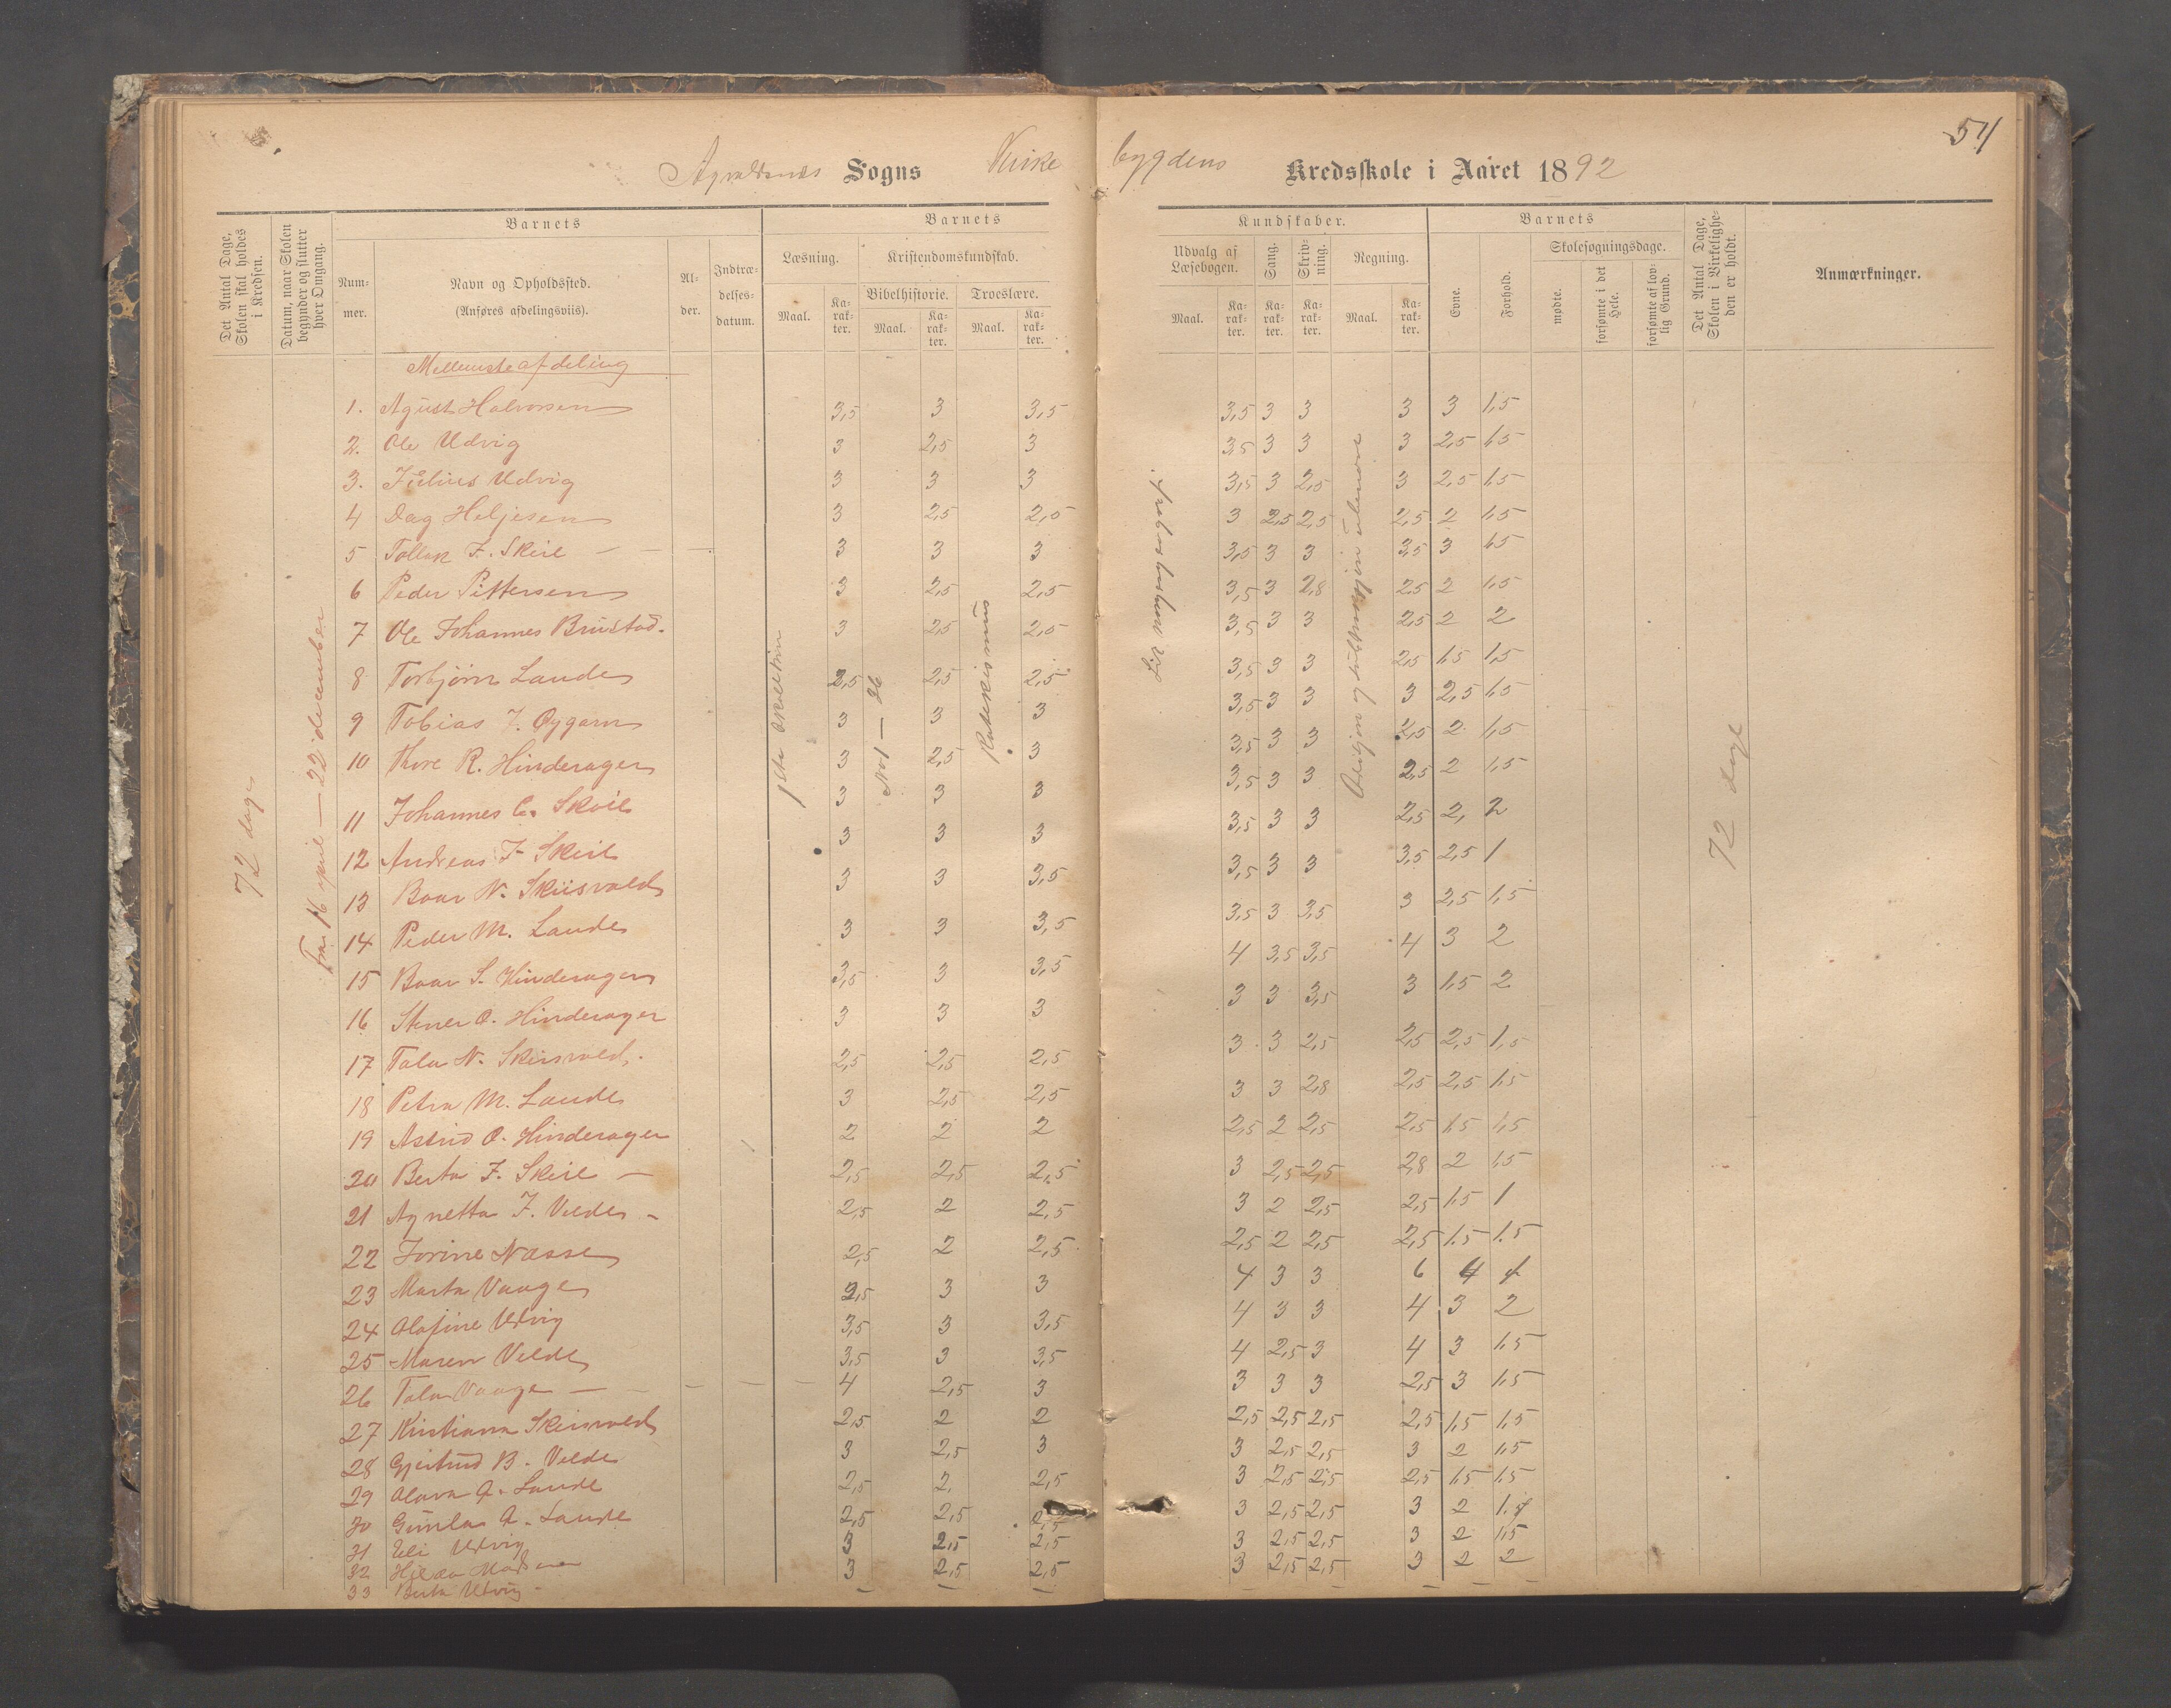 54
Sogns Kirke bygdens Kredsskole i Aaret 1892
Det Antal Dage, Skolen skal holdes i Kredsen.
Datum, naar Skolen begynder og slutter hver Omgang.
Barnets
Num-mer.
Navn og Opholdssted.
(Anføres afdelingsviis).
Al-der.
Indtræ-delses-datum.
Barnets
Læsning.
Maal.
Ka-rak-ter.
Kristendomskundskab.
Bibelhistorie.
Maal.
Ka-rak-ter.
Troeslære.
Maal.
Ka-rak-ter.
Kundskaber.
Udvalg af Læsebogen.
Maal.
Ka-rak-ter.
Sang.
Ka-rak-ter.
Skriv-ning.
Ka-rak-ter.
Regning.
Maal.
Ka-rak-ter.
Barnets
Evne.
Forhold.
Skolesøgningsdage.
mødte.
forsømte i det Hele.
forsømte af lov-lig Grund.
Det Antal Dage, Skolen i Virkelighe-den er holdt.
Anmærkninger.
72 dage
Fra 16 april — 22 december
No 1 — 26
Katekismus
72 dage
Mellemste afdeling
1. Agust Halvorsen 3,5 3 3,5 3,5 3 3 3 3 1,5
2. Ole Udvig 3 2,5 3 3,5 3 3 3 2,5 1,5
3. Julius Udvig 3 3 3 3,5 3 2,5 3 2,5 1,5
4 Dag Heljesen 3 2,5 2,5 3 2,5 2,5 2,5 2 1,5
5 Tollak F. Skeie — — — 3 3 3 3,5 3 3 3,5 3 1,5
6 Peder Pittersen 3 2,5 2,5 3,5 3 2,8 2,5 2 1,5
7 Ole Johannes Brustad. 3 2,5 2,5 3,5 3 3 2,5 2 2
8 Torbjørn Lande 2,5 2,5 2,5 3,5 3 3 2,5 1,5 1,5
9 Tobias J. Øygarn 3 3 3 3,5 3 3 3 2,5 1,5
10 Thore R. Hinderager 3 2,5 3 3,5 3 3 2,5 2 1,5
11 Johannes C. Skeie 3 3 3 3,5 3 3 2,5 2 1,5
12 Andreas F Skeie 3 3 3 3,5 3 3 2,5 2, 2
13 Baar N. Skiisvold 3 3 3,5 3,5 3 3 3,5 2,5 1
14 Peder M. Lande 3 3 3,5 3,5 3 3,5 3 2,5 1,5
15 Baar S. Hinderager 3,5 3 3,5 4 3,5 3,5 4 3 2
16 Stener O. Hinderager 3 3 3 3 3 3,5 3 1,5 2
17 Tala N. Skiisvold. 2,5 2,5 2,5 3 3 2,5 2,5 2,5 1,5
18 Petra M. Lande 3 2,5 2,5 3 3 2,8 2,5 2,5 1,5
19 Astrid O. Hinderager 2 2 2 2,5 2 2,5 2,5 1,5 1,5
20 Berta F. Skeie — 2,5 2,5 2,5 3 2,5 2,5 2,8 2 1,5
21 Agnetta J. Velde - 2,5 2 2,5 3 2 2,5 2,5 1,5 1
22 Jorine Nasse 2,5 2 2,5 2,5 2 2,5 2,5 1.5 1.5
23 Marta Vaage 2,5 3 3 4 3 3 6 4
24 Olafine Udvig 3,5 3 3,5 4 3 3 4 3 2
25 Maren Velde 3,5 3 3,5 4 2,5 3 4 3 1,5
26 Tala Vaage — — — — — 4 2,5 3 3 3 3 2,5 3 1,5
27 Kristiana Skiisvold 2,5 2 2 2,5 2,5 2,5 2,5 1,5 1,5
28 Gjertrud B. Velde 3 2,5 3 3 2,5 2,5 3 2 1,5
29 Olava A. Lande 2,5 2, 2,5 3 2,5 2,5 2,5 1,5 1,5
30 Gunla A. Lande 2,5 2,5 2,5 3 2,5 2,5 3 2
31 Eli Udvig 3 2,5 2,5 3 2,5 2,5 3 2 1,5
32 3 2,5 2,5 3 2,5 2,5 3 2 2
33 Berta Udvig - — — — — — — —